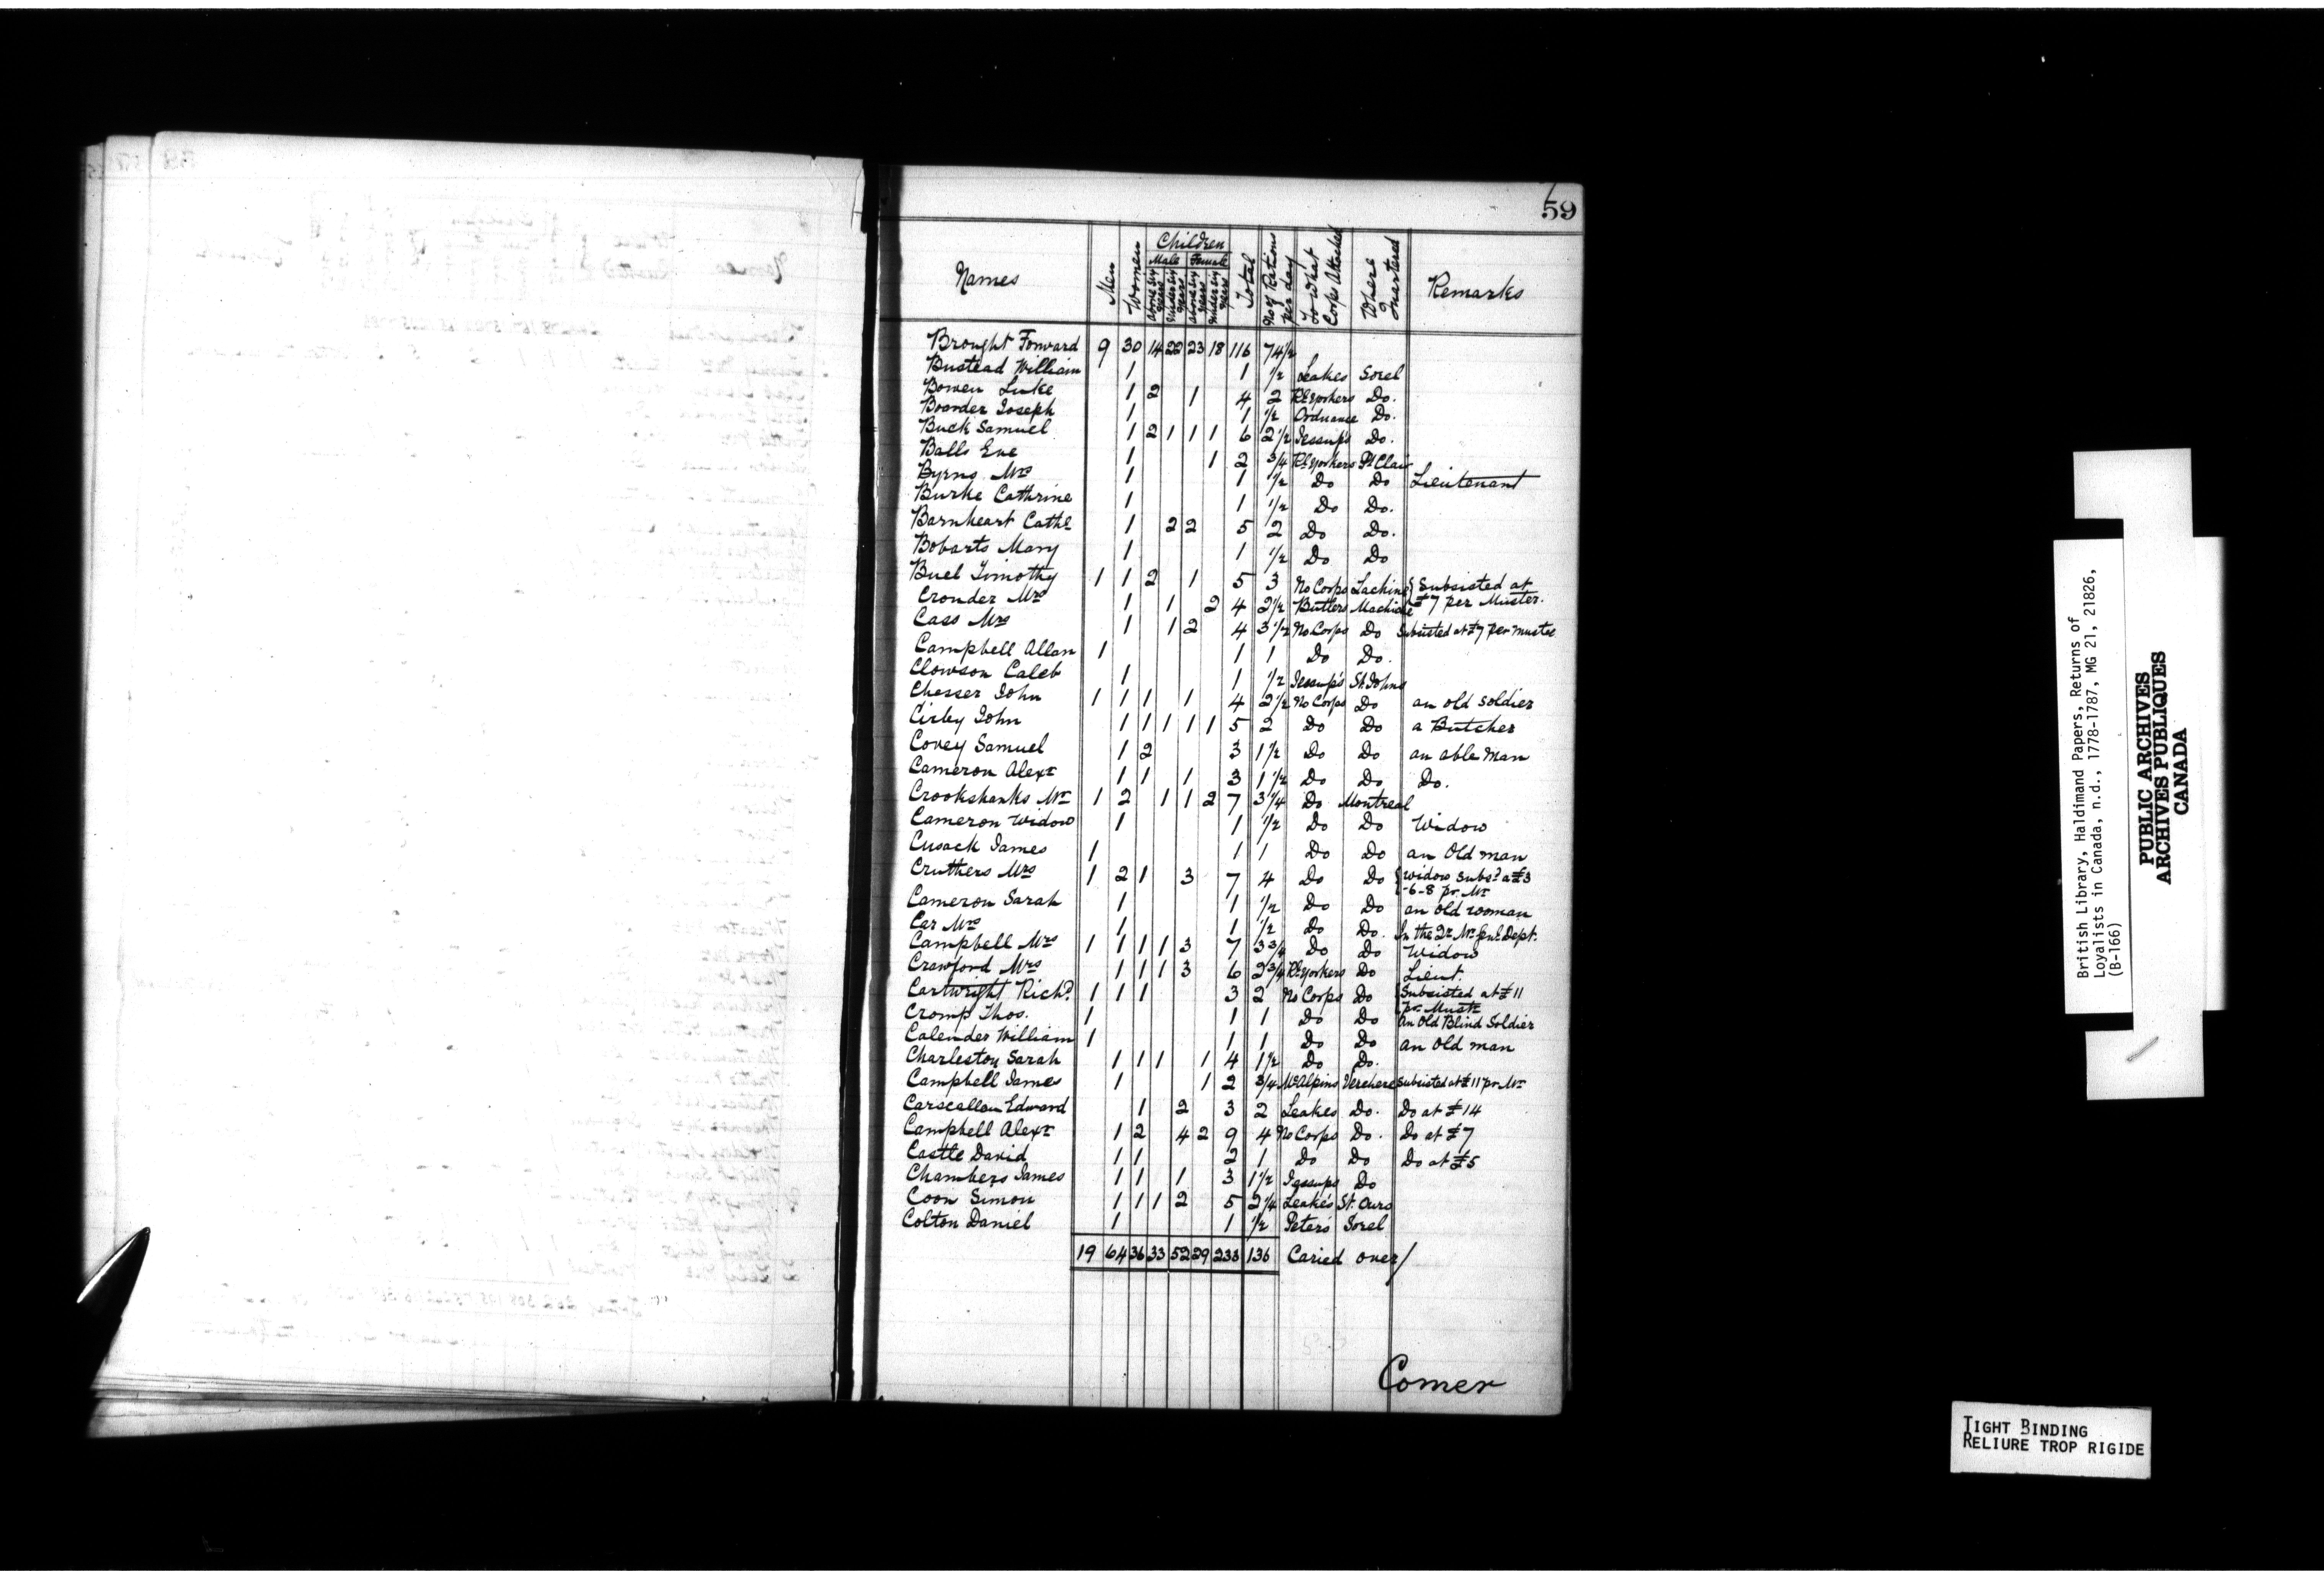 59
Names Men Women Children Total No of Rations per day To What Corps Attached Where Quartered Remarks
Male Female
above six years under six years above six years under six years
Brought Forward 9 30 14 22 23 18 116 74 1/2
Bustead William 1 1 1/2 Leakes Sorel
Bowen Luke 1 2 1 4 2 Rl Yorkers Do.
Boarder Joseph 1 1 1/2 Ordnance Do.
Buck Samuel 1 2 1 1 1 6 2 1/2 Jessup's Do.
Balls Eve 1 1 2 3/4 Rl Yorkers Pt Clair
Byrns Mrs 1 1 1/2 Do Do Lieutenant
Burke Cathrine 1 1 1/2 Do Do.
Barnheart Cathe 1 2 2 5 2 Do Do.
Bobarts Mary 1 1 1/2 Do Do
Buel Timothy 1 1 2 1 5 3 No Corps Lachine { Subsisted at
Cronder Mrs 1 1 2 4 2 1/2 Butlers Machiche £7 per Muster.
Cass Mrs 1 1 2 4 3 1/2 No Corps Do Subsisted at £7 per muster
Campbell Allan 1 1 1 Do Do.
Clowson Caleb 1 1 1/2 Jessup's St. Johns
Chesser John 1 1 1 1 4 2 1/2 No Corps Do an old soldier
Cirby John 1 1 1 1 1 5 2 Do Do a Butcher
Covey Samuel 1 2 3 1 1/2 Do Do an able man
Cameron Alexr 1 1 1 3 1 1/2 Do Do Do.
Crookshanks Mr 1 2 1 1 2 7 3 1/4 Do Montreal
Cameron Widow 1 1 1/2 Do Do Widow
Cusack James 1 1 1 Do Do an Old man
Cruthers Mrs 1 2 1 3 7 4 Do Do { Widow subsd a £3
-6-8 pr. Mr
Cameron Sarah 1 1 1/2 Do Do an old woman
Car Mrs 1 1 1/2 Do Do. In the Qr. Mr. Genl Dept.
Campbell Mrs 1 1 1 1 3 7 3 3/4 Do Do Widow
Crawford Mrs 1 1 1 3 6 2 3/4 Rl Yorkers Do Lieut.
Cartwright Richd. 1 1 1 3 2 No Corps Do { Subsisted at £11
pr. Mustr
Cromp Thos. 1 1 1 Do Do An Old Blind Soldier
Calender William 1 1 1 Do Do an old man
Charleston Sarah 1 1 1 1 4 1 1/2 Do Do.
Campbell James 1 1 2 3/4 McAlpins Verchere Subsisted at £11 pr. Mr
Carscallen Edward 1 2 3 2 Leakes Do. Do at £14
Campbell Alexr 1 2 4 2 9 4 No Corps Do. Do at £7
Castle David 1 1 2 1 Do Do Do at £5
Chambers James 1 1 1 3 1 1/2 Jessups Do
Coon Simon 1 1 1 2 5 2 1/4 Leake's St. Ours
Colton Daniel 1 1 1/2 Peter's Sorel
19 64 36 33 52 29 233 136 Caried over/
Comer
British Library, Haldimand Papers, Returns of
Loyalists in Canada, n.d., 1778-1787, MG 21, 21826,
(B-166)
PUBLIC ARCHIVES
ARCHIVES PUBLIQUES
CANADA
TIGHT BINDING
RELIURE TROP RIGIDE